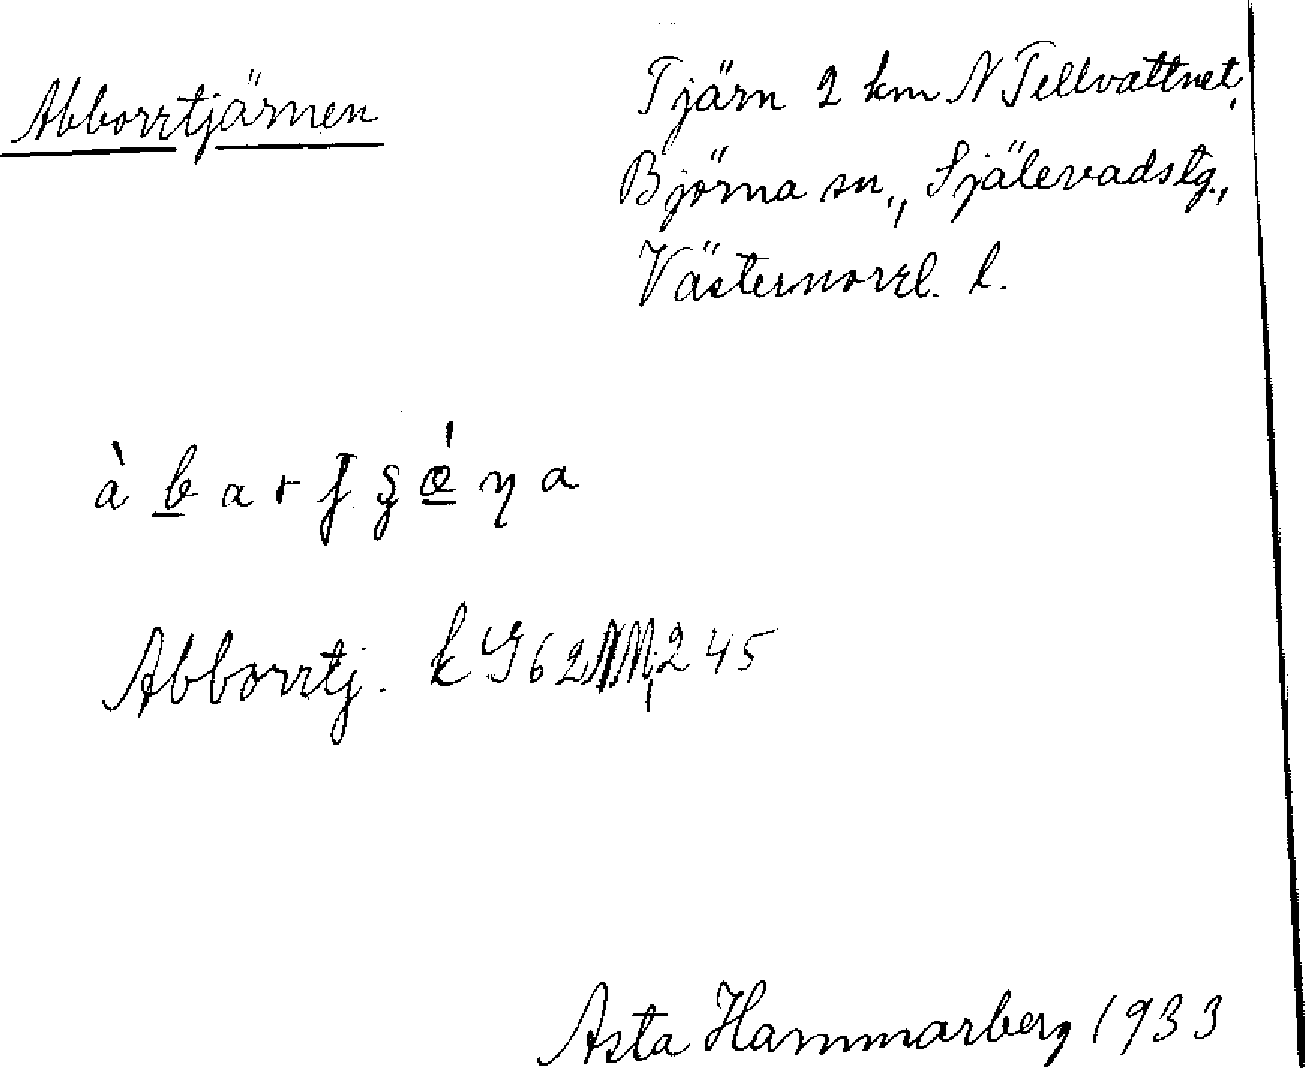 Abborrtjärnen
Tjärn 2 km N Tellvattnet,
Björna sn., Själevads tg.,
Västernorrl. l.
Abborrtj. k G 62 245
Asta Hammarberg 1933